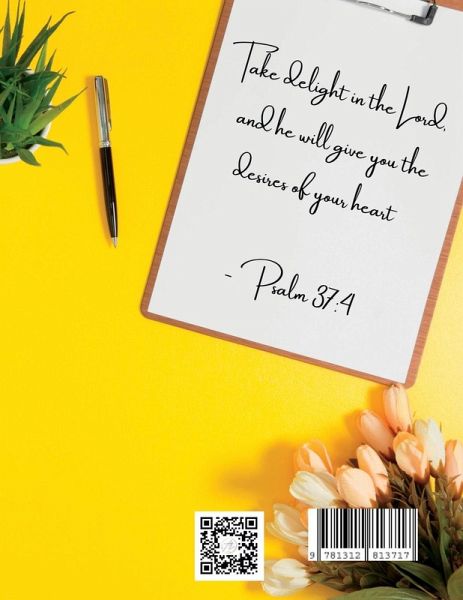 Take delight in the Lord,
and he will give you the
desires of your heart
- Psalm 37:4
9 781312 813717